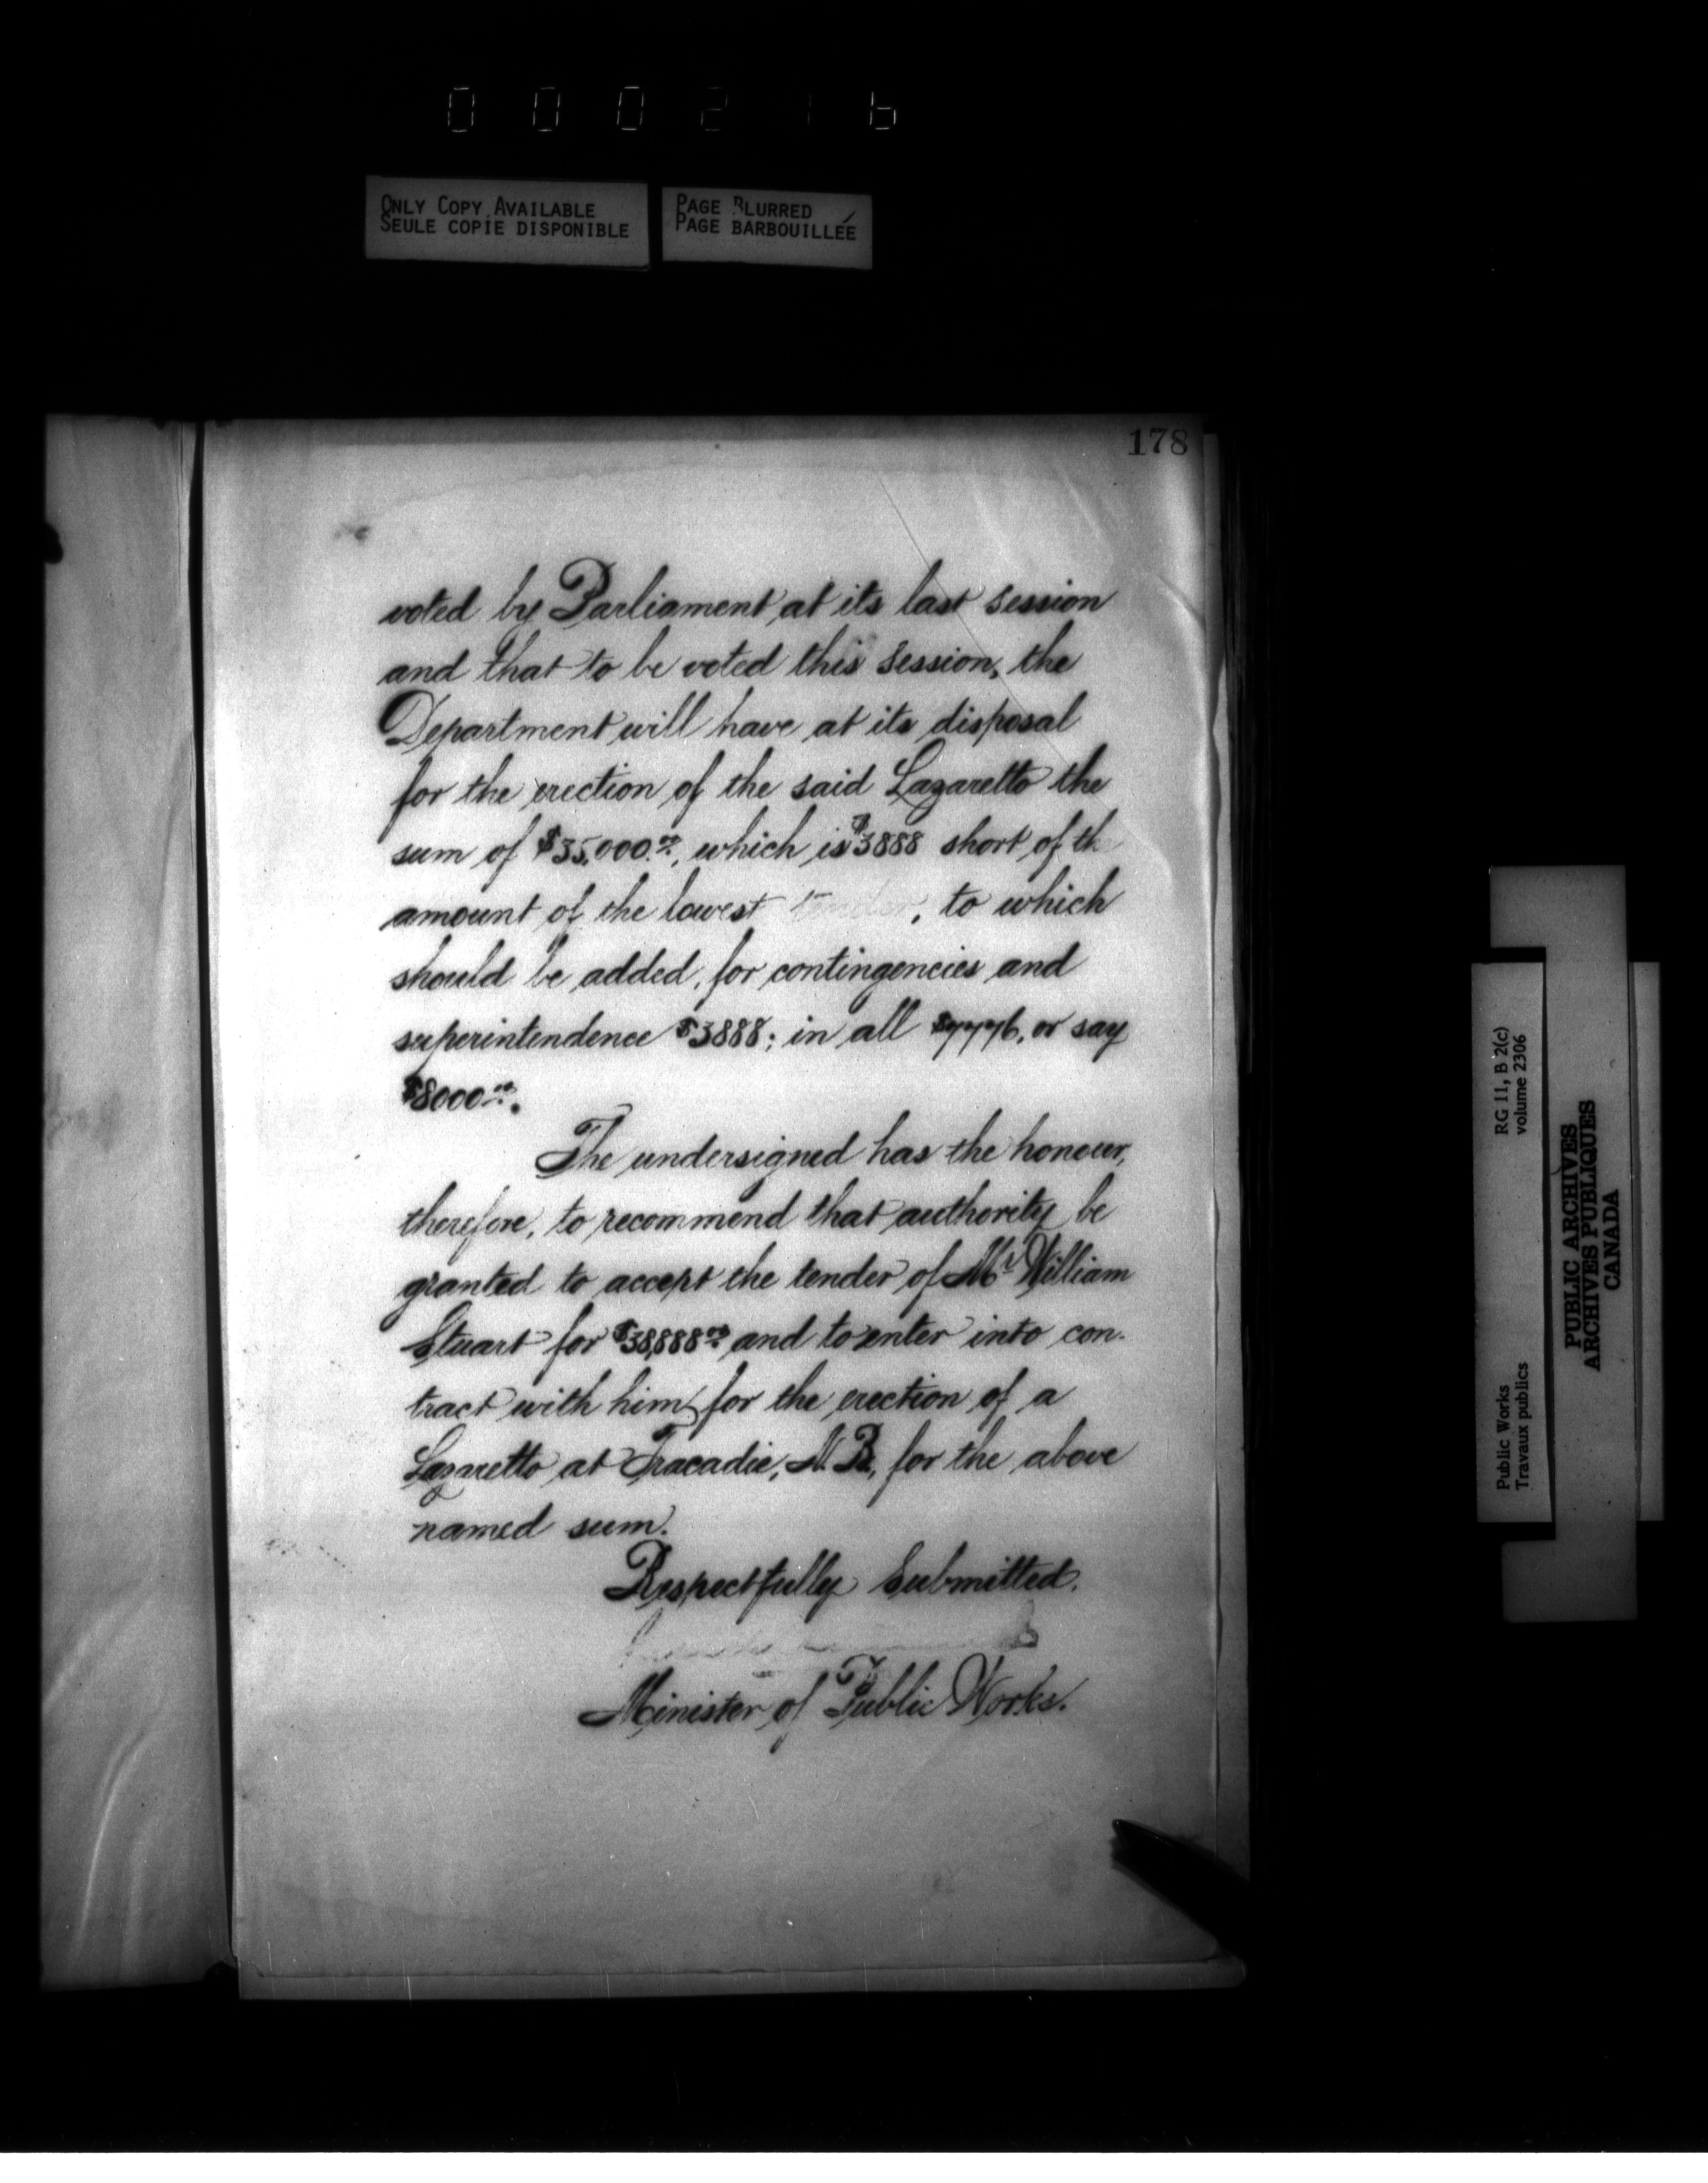 000216
ONLY COPY AVAILABLE
SEULE COPIE DISPONIBLE
PAGE BLURRED
PAGE BARBOUILLÉE
178
voted by Parliament at its last session
and that to be voted this session, the
Department will have at its disposal
for the erection of the said Lazaretto the
sum of $35,000.00, which is $3888 short of the
amount of the lowest tender, to which
should be added, for contingencies and
superintendence $3888; in all $7776, or say
$8000.00.
The undersigned has the honour,
therefore, to recommend that authority be
granted to accept the tender of Mr William
Stuart for $38,888.00 and to enter into con-
tract with him for the erection of a
Lazaretto at Tracadie, N.B., for the above
named sum.
Respectfully Submitted.
Minister of Public Works.
RG 11, B 2(c)
volume 2306
Public Works
Travaux publics
PUBLIC ARCHIVES
ARCHIVES PUBLIQUES
CANADA